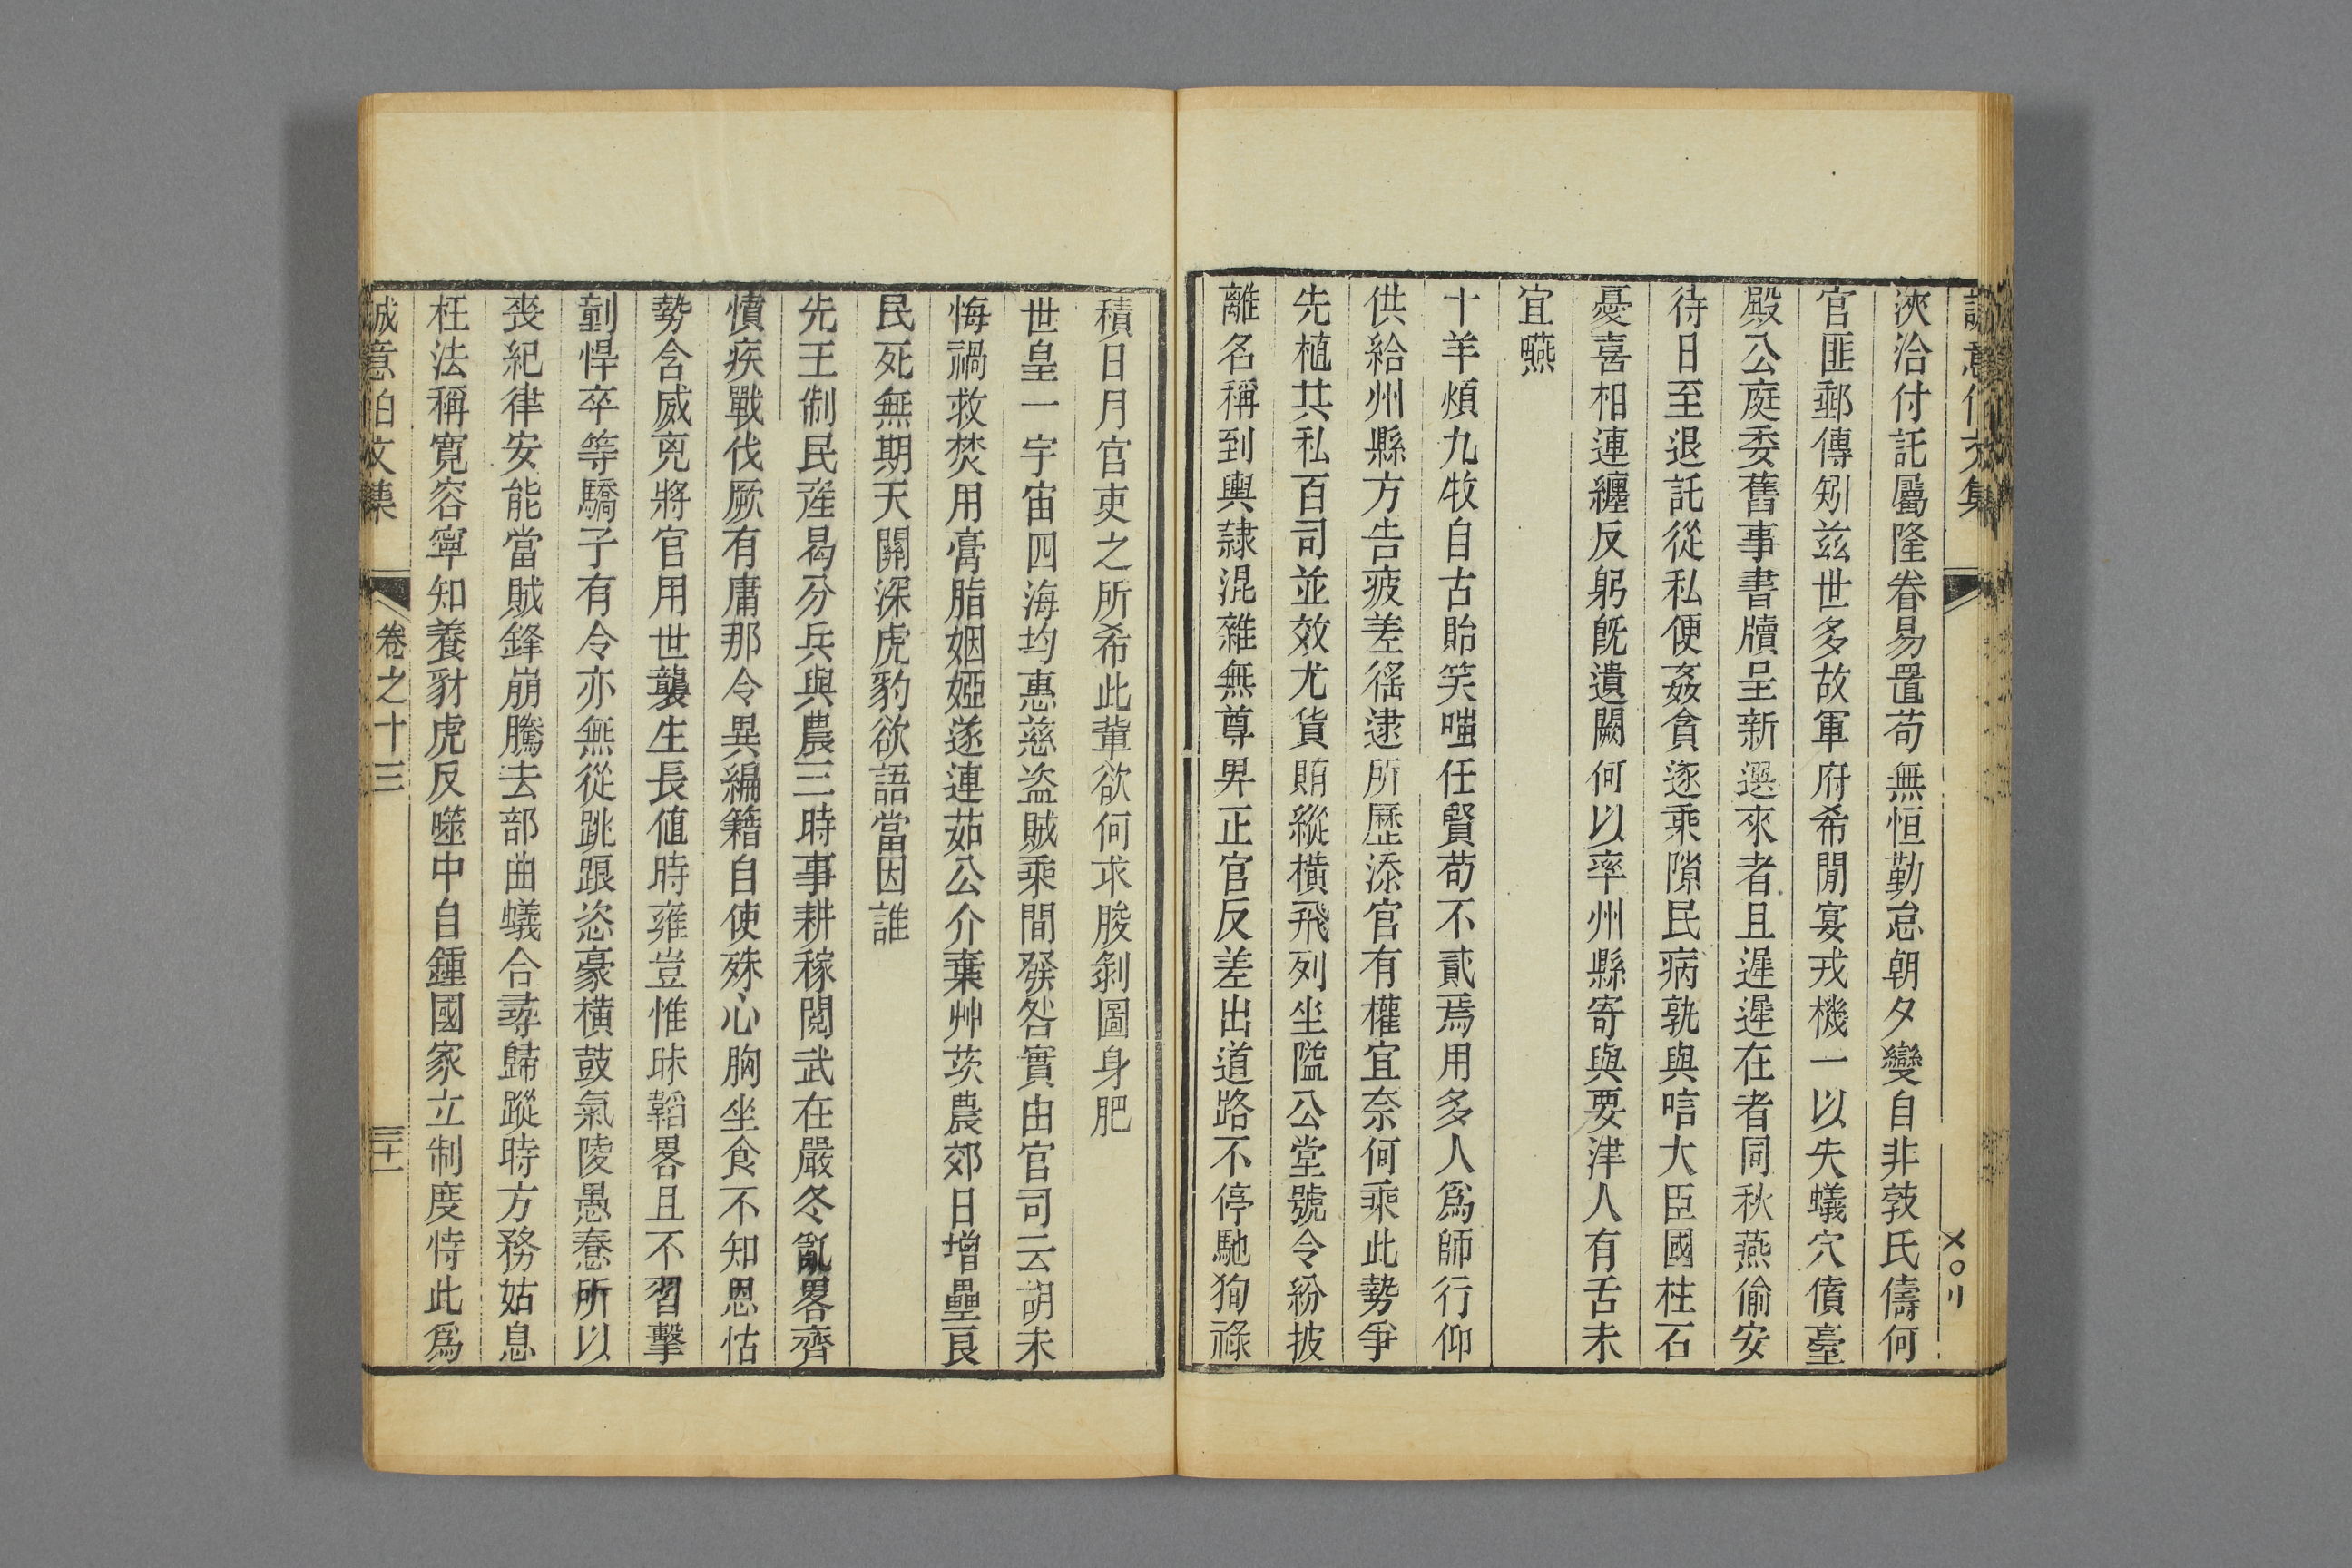 誠意伯文集
浹洽付託屬隆眷易置苟無恒勤怠朝夕變自非敄氏儔何
官匪郵傳矧兹世多故軍府希閒宴戎機一以失蟻穴僨臺
殿公庭委舊事書牘呈新選來者且遲遲在者同秋燕偷安
待日至退託從私便姦貪逐乘隙民病孰與唁大臣國柱石
憂喜相連纏反躬旣遺闕何以率州縣寄與要津人有舌未
宜嚥
十羊煩九牧自古貽笑嗤任賢苟不貳焉用多人爲師行仰
供給州縣方告疲差徭逮所歷添官有權宜奈何乘此勢爭
先植其私百司並效尤貨賄縱橫飛列坐隘公堂號令紛披
離名稱到輿隷混雜無尊畀正官反差出道路不停馳狥祿
積日月官吏之所希此輩欲何求朘剝圖身肥
世皇一宇宙四海均惠慈盗賊乘間發咎實由官司云胡未
悔禍救焚用膏脂姻婭遂連茹公介棄艸茨農郊日增壘良
民死無期天關深虎豹欲語當因誰
先王制民產曷分兵與農三時事耕稼閱武在嚴冬亂畧齊
憤疾戰伐厥有庸那令異編籍自使殊心胸坐食不知恩怙
勢含威兇將官用世襲生長値時雍豈惟昧韜畧且不習擊
剸悍卒等驕子有令亦無從跳踉恣豪橫鼓氣陵愚惷所以
喪紀律安能當賊鋒崩騰去部曲蟻合尋歸蹤時方務姑息
枉法稱寛容寧知養豺虎反噬中自鍾國家立制度恃此爲
誠意伯文集 卷之十三 三十一